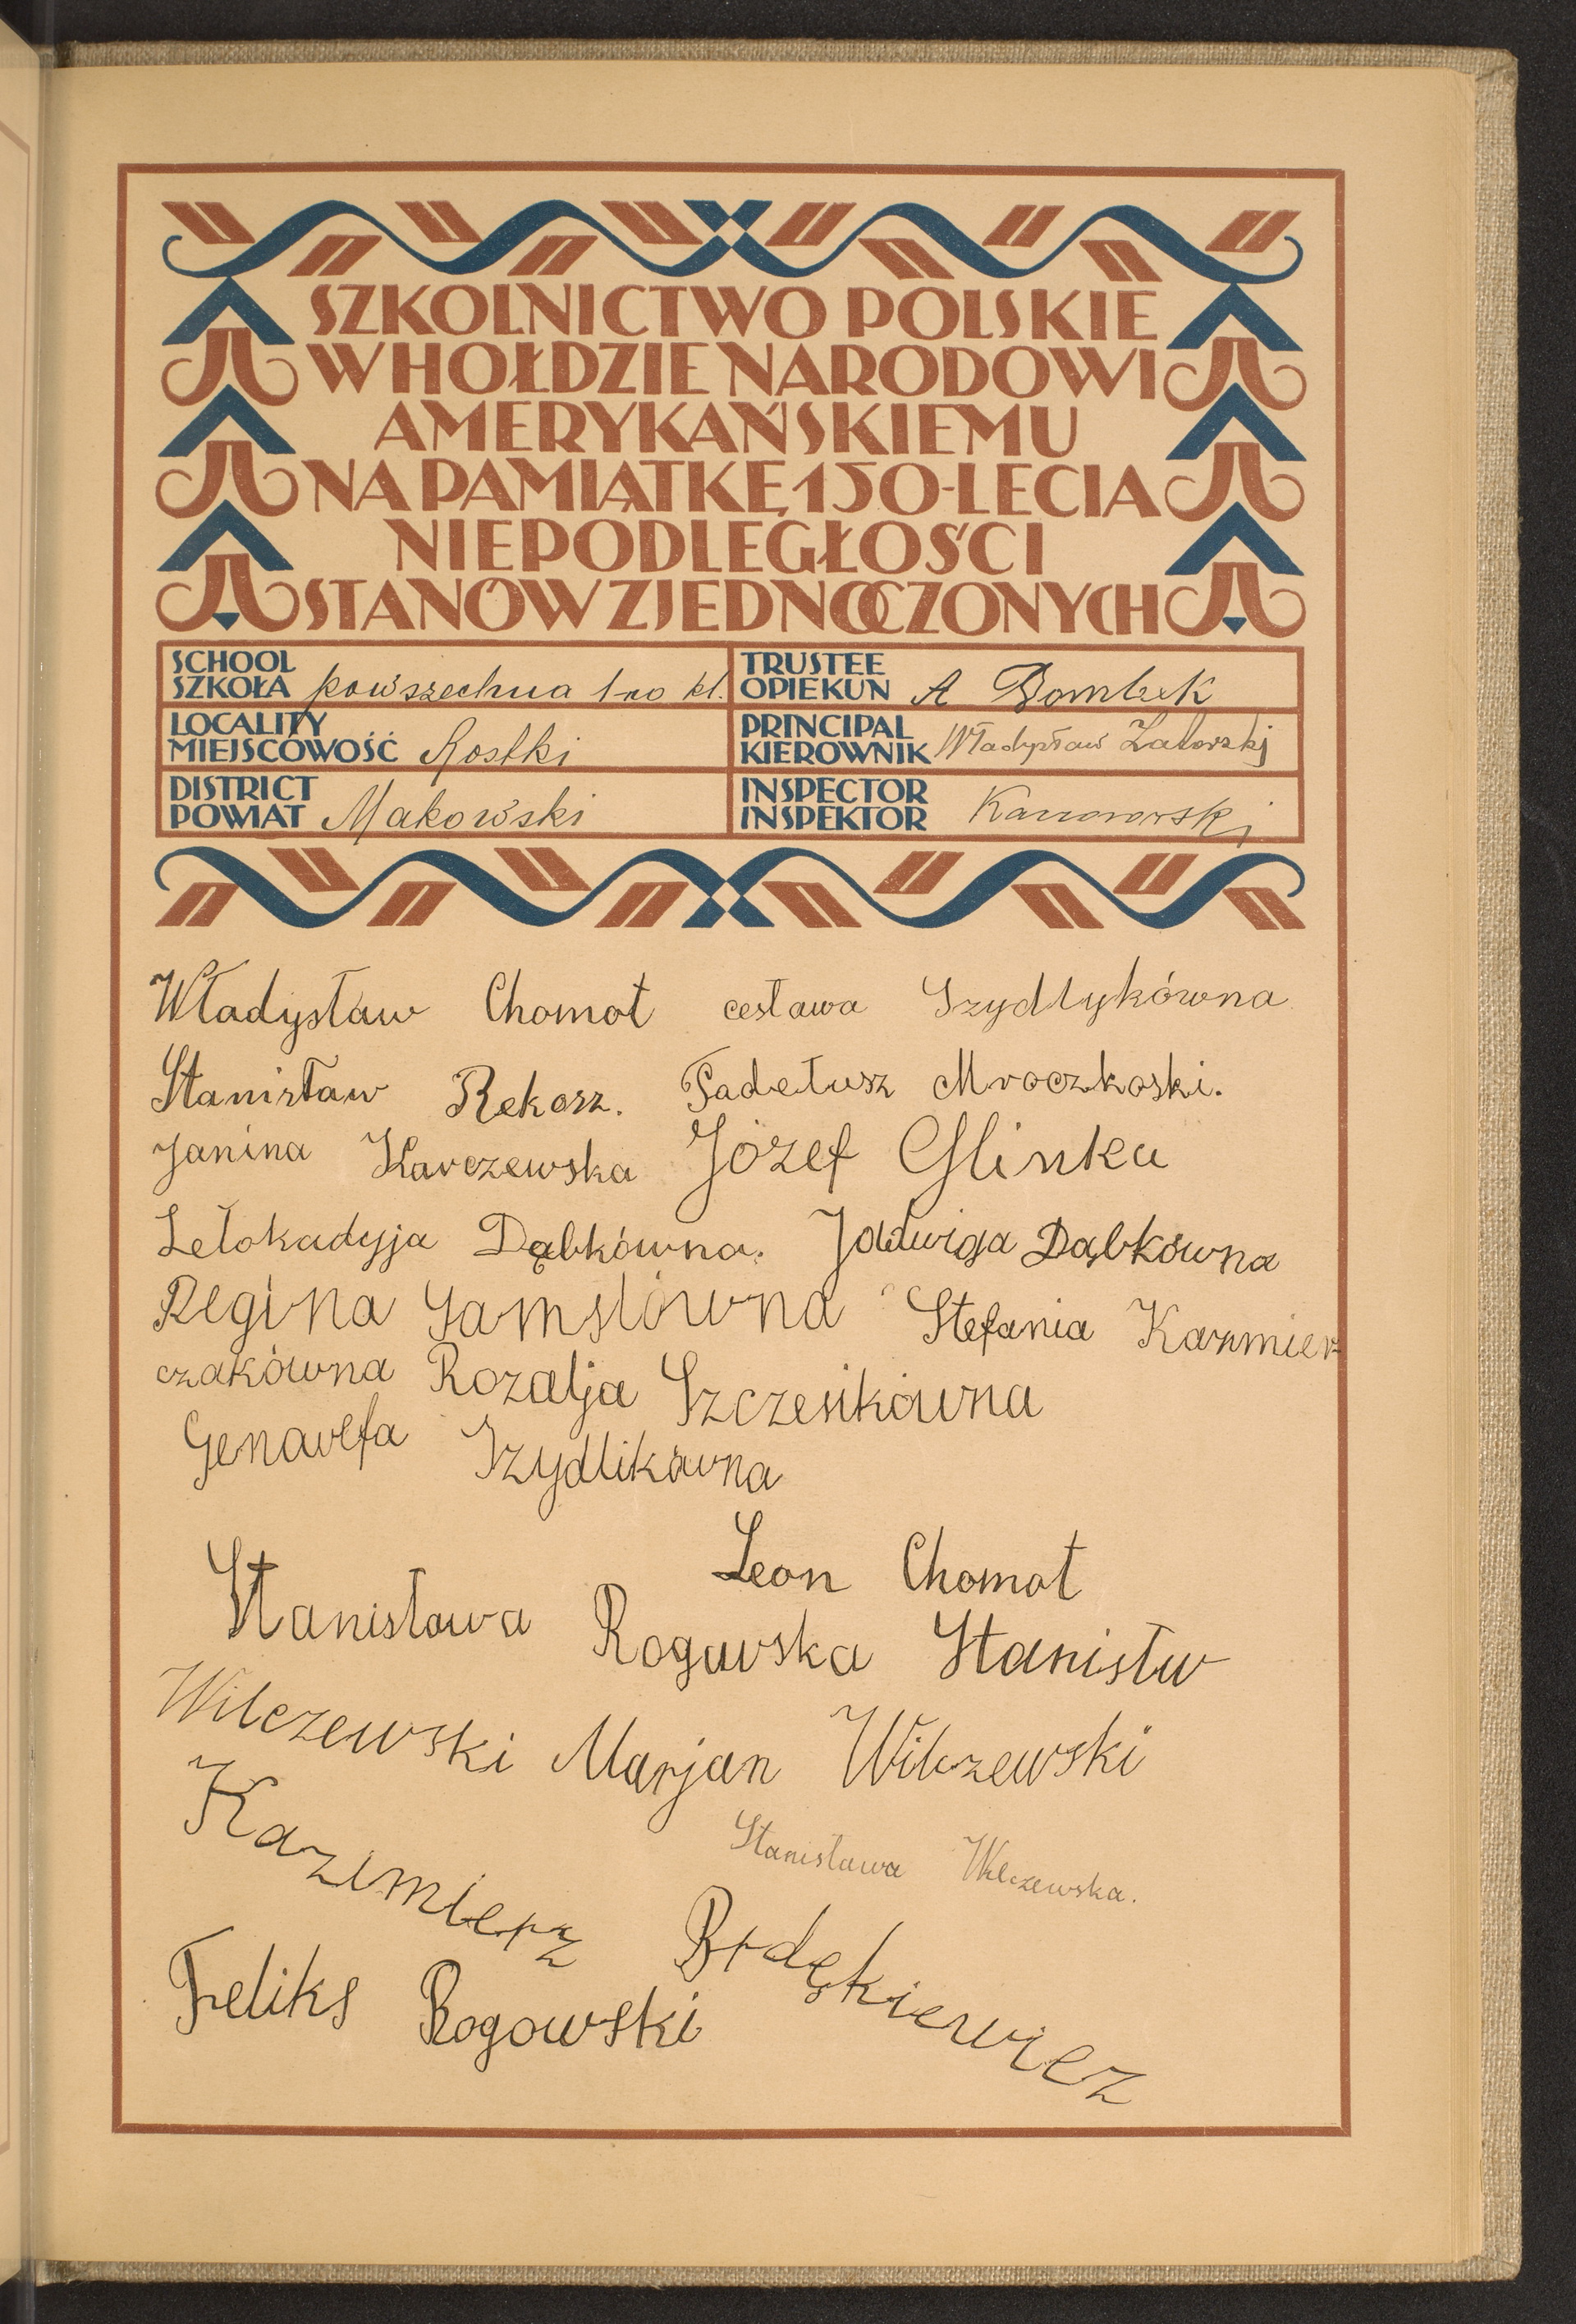 SZKOLNICTWO POLSKIE
W HOŁDZIE NARODOWI
AMERYKAŃSKIEMU
NA PAMIĄTKĘ 150-LECIA
NIEPODLEGŁOŚCI
STANÓW ZJEDNOCZONYCH
SCHOOL
SZKOŁA powszechna 1-no kl.
TRUSTEE
OPIEKUN A Dombek
LOCALITY
MIEJSCOWOŚĆ Rostki
PRINCIPAL
KIEROWNIK Władysław Zatorski
DISTRICT
POWIAT Makowski
INSPECTOR
INSPEKTOR
Władysław Chomot cesława Szydlykówna
Stanisław Rekosz. Tadełusz Mroczkoski.
Janina Karczewska Józef Glinka
Lełokadyja Dąbkówna. Jadwiga Dąbkówna
Regina Samslówna Stefania Kazmier
czakówna Rozalja Szczesikówna
Genawefa Szydlikówna
Leon Chomot
Stanisława Roguwska Stanisłw
Wilczewski Marjan Wilczewski
Kazimierz Brdękiewicz
Stanisława Wilczewska.
Feliks Rogowski